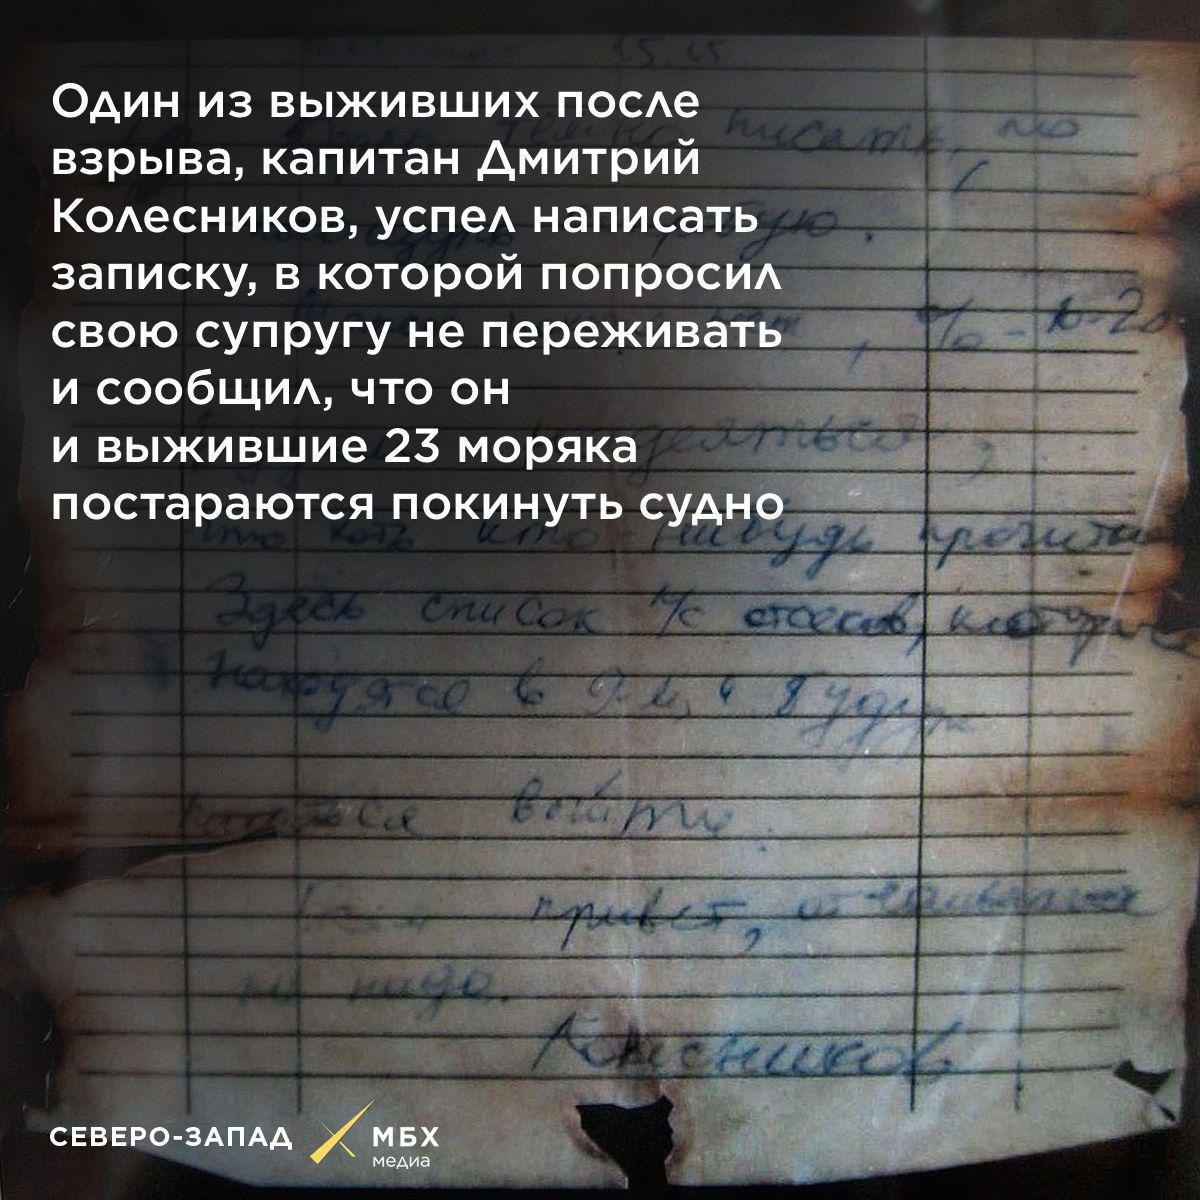 15.15
Один из выживших после
взрыва, капитан Дмитрий
Колесников, успел написать
записку, в которой попросил
свою супругу не переживать
и сообщил, что он
и выжившие 23 моряка
постараются покинуть судно
темно писать, но
, % - 10-20
надеяться,
что хоть кто-нибудь прочитает
Здесь список л/с отсеков, которые
находятся в 9-м и будут
выйти.
привет, отчаиваться
не надо.
Колесников
СЕВЕРО-ЗАПАД МБХ
медиа